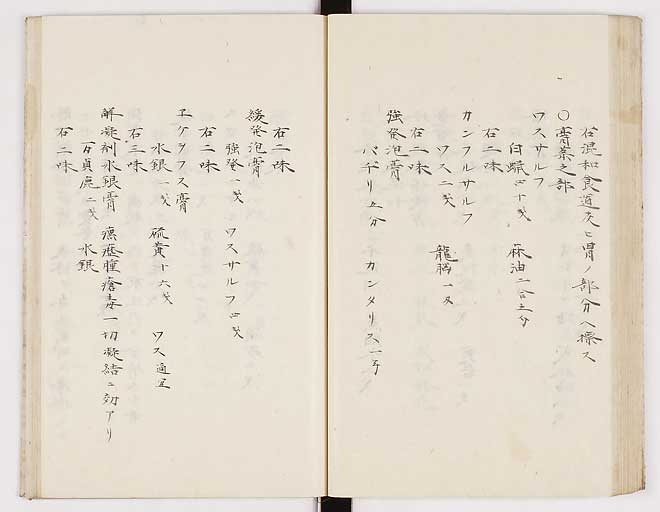 右混和食道及ヒ胃ノ部分ヘ擦ス
〇膏薬之部
ワスサルフ
白蝋四十戔 麻油二合五勺
右二味
カンフルサルフ
ワス二戔 龍脳一戔
右二味
強発泡膏
バジリ五分 カンタリス一分
右二味
緩発泡膏
強発一戔 ワスサルフ四戔
右二味
エケラフス膏
水銀一戔 硫黄十六戔 ワス適宜
右三味
解凝剤水銀膏 瘰癧腫瘡毒一切凝結ニ効アリ
百貞鹿二戔 水銀
右二味